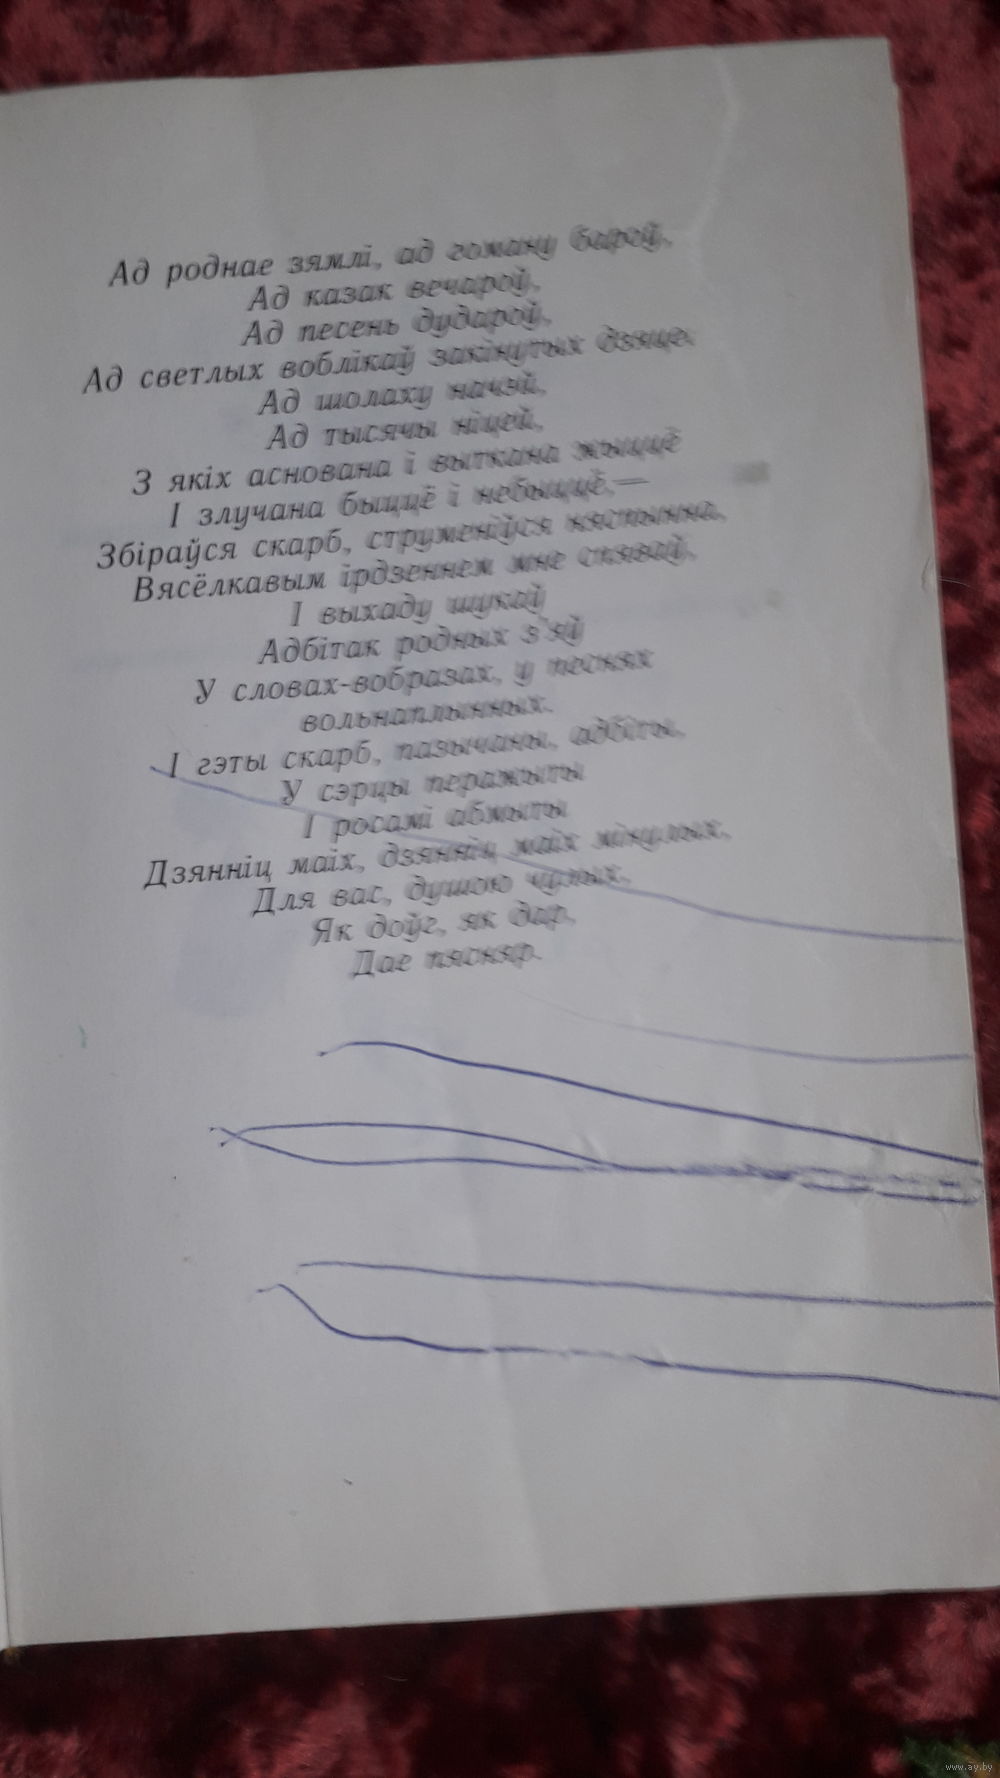 Ад роднае зямлі, ад гоману бароў,
Ад казак вечароў,
Ад песень дудароў,
Ад светлых воблікаў закінутых дзяцей,
Ад шолаху начэй,
Ад тысячы ніцей,
З якіх аснована і выткана жыццё
І злучана быццё і небыццё,—
Збіраўся скарб, струменіўся няспынна,
Вясёлкавым ірдзеннем мне спяваў,
І выхаду шукаў
Адбітак родных з'яў
У словах-вобразах, у песнях
вольнаплынных.
І гэты скарб, пазычаны, адбіты,
У сэрцы перажыты
І росамі абмыты
Дзянніц маіх, дзянніц маіх мінулых,
Для вас, душою чулых,
Як доўг, як дар,
Дае пясняр.
www.ay.by